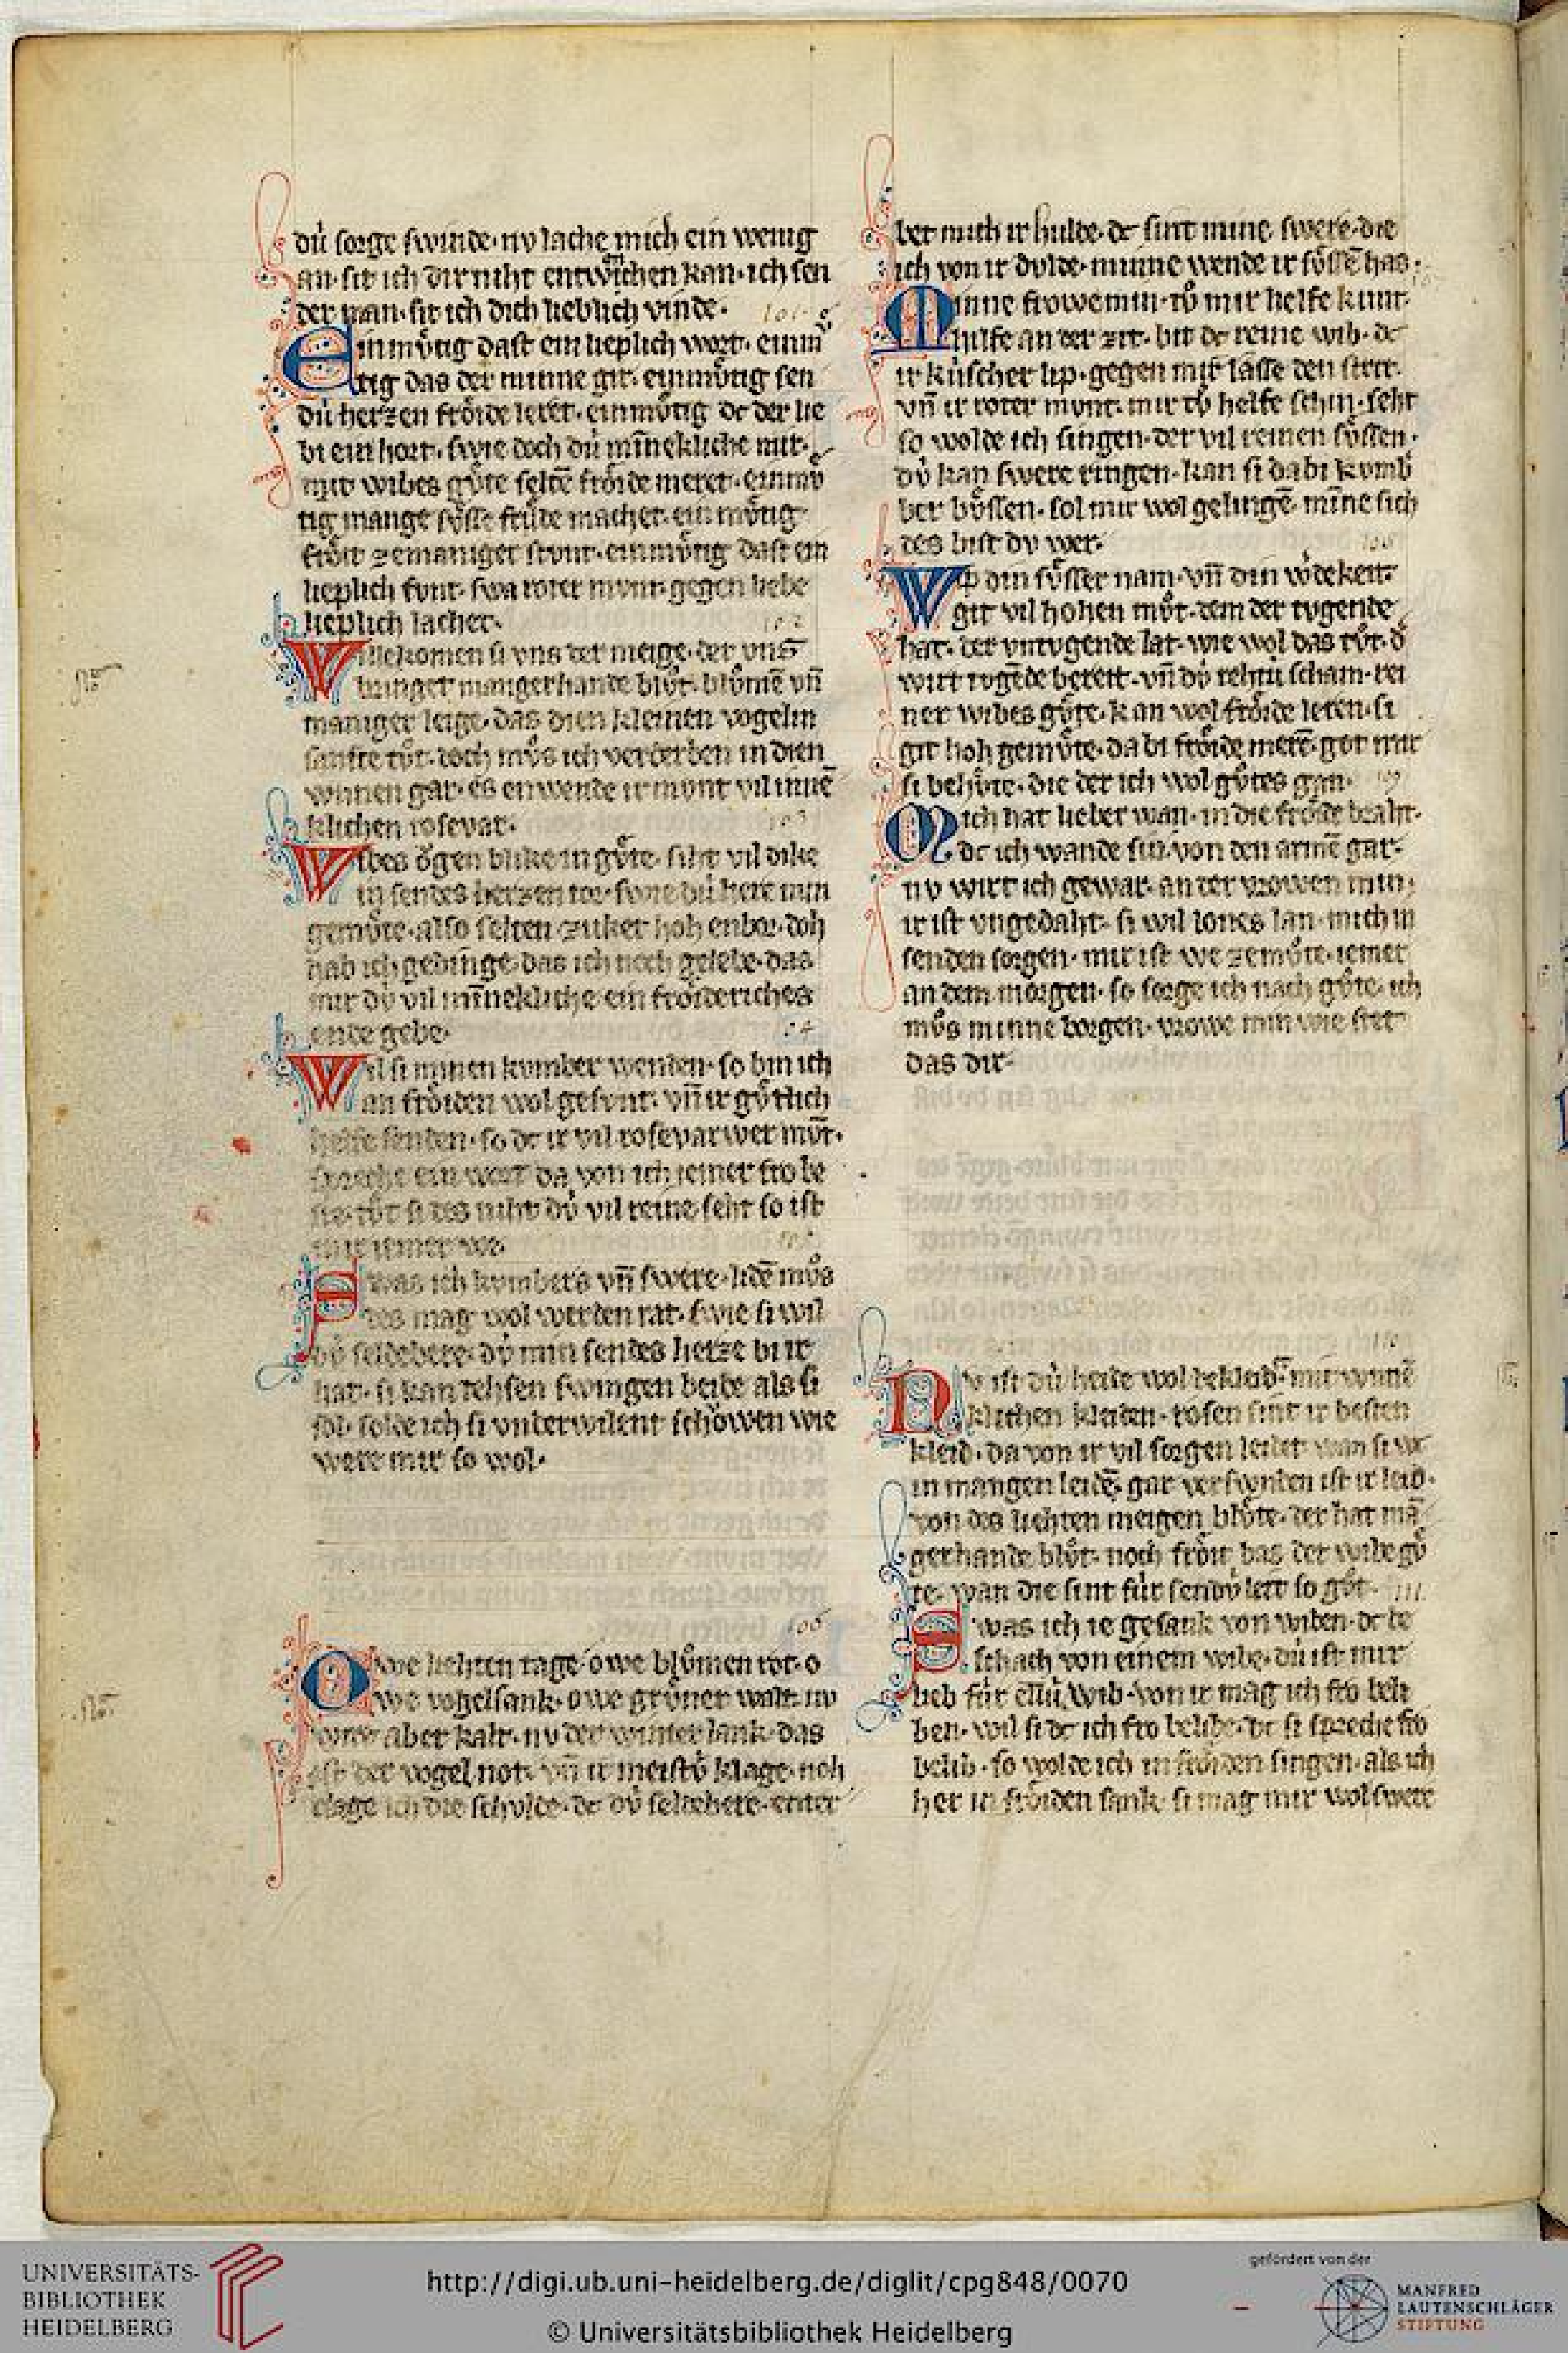 dú sorge swinde· nv lache mich ein wenig
an· sit ich dir niht entwichen kan· ich sen
der man· sit ich dich lieblich vinde·
101·
Einmv̊tig dast ein lieplich wort· einmv̊
tig das der minne git· einmv̊tig sen
dú herzen frȯide leret· einmv̊tig dc der lie
bi ein hort· swie doch dú minekliche mit·
mit wibes gv̊te seltē frȯide meret· einmv̊
tig mange sv̊sse frúde machet· ein mv̊tig
frȯit zemaniger stunt· einmv̊tig dast ein
lieplich funt· swa roter mvnt· gegen liebe
lieplich lachet·
102
Willekomen si vns der meige· der vns
bringet mangerhande blv̊t· blv̊mē vn̄
maniger leige· das dien kleinen vogelin
sanfte tv̊t· doch mv̊s ich verderben in dien
wnnen gar· es enwende ir mvnt vil mine
klichen rosevar·
103
Wibes ȯgen blike in gv̊te· siht vil dike
in sendes herzen tor· swie dú here min
gemv̊te· also selten zuket hoh enbor· doh
hab ich gedinge· das ich noch gelebe· das
mir dv́ vil mīnekliche ein frȯideriches
ende gebe·
104
Wil si minen kvmber wenden· so bin ich
an frȯiden wol gesvnt· vn̄ ir gv̊tlich
helfe senden· so dc ir vil rosevarwer mv̄t·
spreche ein wort da von ich iemer fro be
ste· tv̊t si des niht dv́ vil reine seht so ist
mir iemer we·
105
Swas ich kvmbers vn̄ swere· lidē mv̊s
des mag wol werden rat· swie si wil
dv́ seldebere· dv́ min sendes herze bi ir
hat· si kan rehsen swingen beide als si
sol· solde ich si vnderwilent schȯwen wie
were mir so wol·
106
Owe liehten tage· owe blv̊men rot· o
we vogelsank· owe grv̊ner walt· nv
wirt aber kalt· nv der winter lank· das
ist der vogel not· vn̄ ir meistv́ klage· noh
clage ich die schvlde· dc dv́ seldebere· enter
ber mich ir hulde· dc sint mine swere· die
ich von ir dvlde· minne wende ir sv̊ssē has·
Minne frowe min· tv̊ mir helfe kunt·
hilfe an der zit· bit dc reine wib· dc
ir kúscher lip· gegen mir lasse den strit·
vn̄ ir roter mvnt· mir tv̊ helfe schin· seht
so wolde ich singen· der vil reinen sv̊ssen·
dv́ kan swere ringen· kan si dabi kvmb
ber bv̊ssen· sol mir wol gelingē· mīne sich
des bist dv wer·
108
Wip din sv̊sser nam· vn̄ din wdekeit·
git vil hohen mv̊t· dem der tvgende
hat· der vntvgende lat· wie wol das tv̊t· d
wirt tvgēde bereit· vn̄ dv́ rehtú scham· rei
ner wibes gv̊te· kan wol frȯide leren· si
git hoh gemv̊te· da bi frȯide merē· got mir
si behv̊te· die der ich wol gv̊tes gan·
109
Mich hat lieber wan· in die frȯide braht·
dc ich wande sin· von den armē gar·
nv wirt ich gewar· an der vrowen min·
ir ist vngedaht· si wil lones lan· mich in
senden sorgen· mir ist we zemv̊te· iemer
an dem morgen· so sorge ich nach gv̊te· ich
mv̊s minne borgen· vrowe min wie stet
das dir·
110
Nv ist dú heide wol bekleidet mit wnne
klichen kleiden· rosen sint ir besten
kleid· da von ir vil sorgen leidet· wan si wc
in mangen leidē· gar verswnden ist ir leid·
von des liehten meigen blv̊te· der hat mā
gerhande blv̊t· noch frȯit bas der wibe gv̊
te· wan die sint für sendv́ leit so gv̊t·
111
Swas ich ie gesank von wiben· dc be
schach von einem wibe· dú ist mir
lieb für ellú wib· von ir mag ich fro beli
ben· wil si dc ich fro belibe· dc si spreche fro
belib· so wolde ich in frȯiden singen· als ich
her in frȯiden sank· si mag mir wol swere
UNIVERSITÄTS-
BIBLIOTHEK
HEIDELBERG
http://digi.ub.uni-heidelberg.de/diglit/cpg848/0070
© Universitätsbibliothek Heidelberg
gefördert von der
MANFRED
LAUTENSCHLÄGER
STIFTUNG